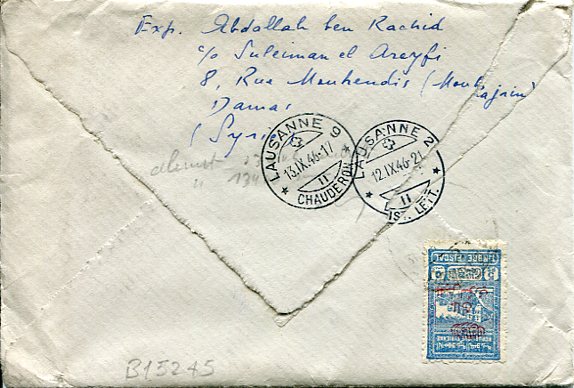 Exp. Abdallah ben Rachid
c/o Suleiman el Areyfi
8, Rue Mouhendis (Mouhajain)
Damas
(Syrie)
LAUSANNE 9
13.IX.46-17
II
CHAUDERON
LAUSANNE 2
12.IX.46-21
II
DIST. LETT.
TIMBRE FISCAL
B15245